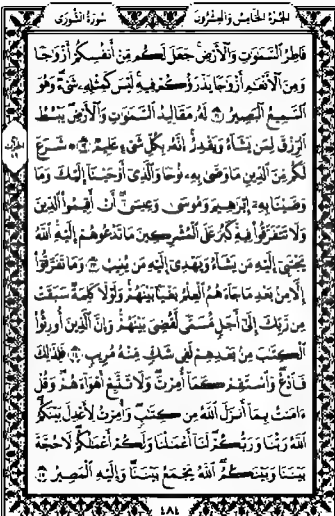 الجزء الخامس والعشرون سورة الشورى
فاطر السموات والأرض جعل لكم من أنفسكم أزوجا
ومن الأنعم أزوجا يذرؤكم فيه ليس كمثله شىء وهو
السميع البصير ۝١١ له مقاليد السموات والأرض يبسط
الرزق لمن يشاء ويقدر إنه بكل شىء عليم ۝١٢ شرع
لكم من الدين ما وصى به نوحا والذى أوحينا إليك وما
وصينا به إبرهيم وموسى وعيسى أن أقيموا الدين
ولا تتفرقوا فيه كبر على المشركين ما تدعوهم إليه الله
يجتبى إليه من يشاء ويهدى إليه من ينيب ۝١٣ وما تفرقوا
إلا من بعد ما جاءهم العلم بغيا بينهم ولولا كلمة سبقت
من ربك إلى أجل مسمى لقضى بينهم وإن الذين أورثوا
الكتب من بعدهم لفى شك منه مريب ۝١٤ فلذلك
فادع واستقم كما أمرت ولا تتبع أهواءهم وقل
ءامنت بما أنزل الله من كتب وأمرت لأعدل بينكم
الله ربنا وربكم لنا أعملنا ولكم أعملكم لا حجة
بيننا وبينكم الله يجمع بيننا وإليه المصير ۝١٥
٤٨٤